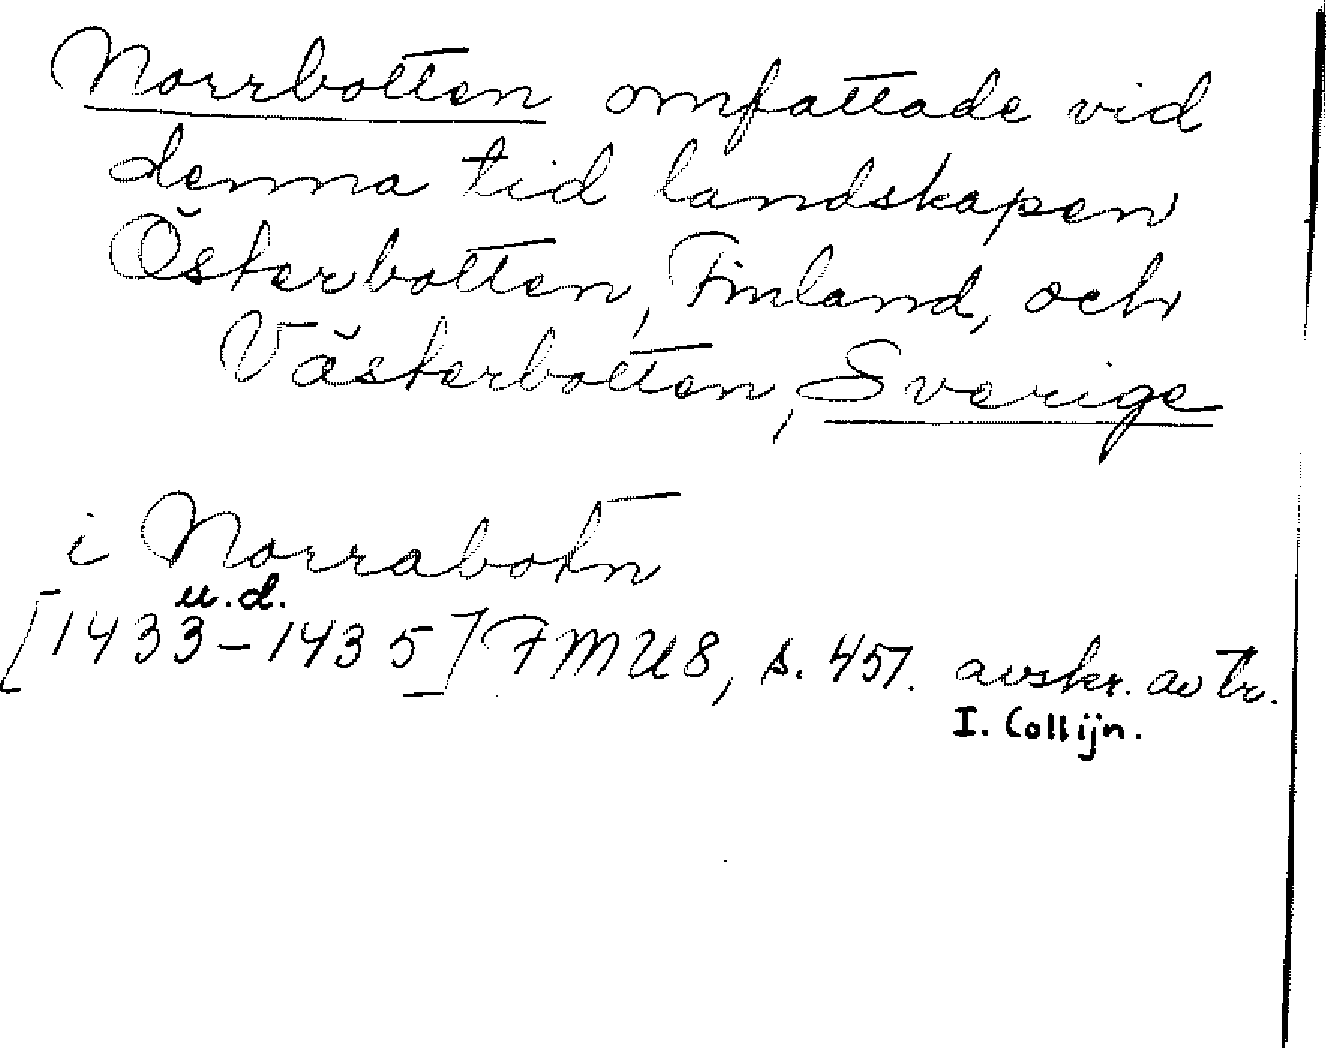 Norrbotten omfattade vid
denna tid landskapen
Österbotten, Finland, och
Västerbotten, Sverige
i Norrabotn
u.d.
[1433-1435] FMU 8, s. 457. avskr. av tr.
I. Collijn.